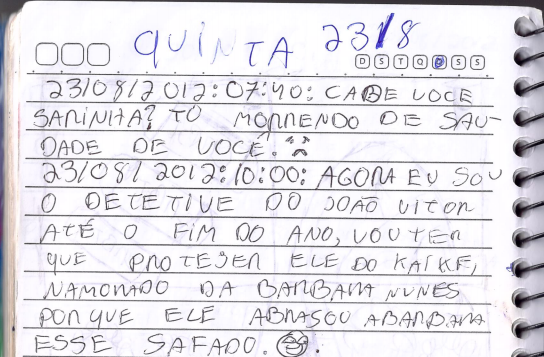 QUINTA 23/8
D S T Q Q S S
23/08/2012:07:40: CADE VOCE
SARINHA? TÔ MORRENDO DE SAU-
DADE DE VOCÊ.
23/08/2012:10:00: AGORA EU SOU
O DETETIVE DO JOÃO VITOR
ATÉ O FIM DO ANO, VOU TER
QUE PROTEJER ELE DO KAIKE,
NAMORADO DA BARBARA NUNES
PORQUE ELE ABRASOU ABARBARA
ESSE SAFADO.